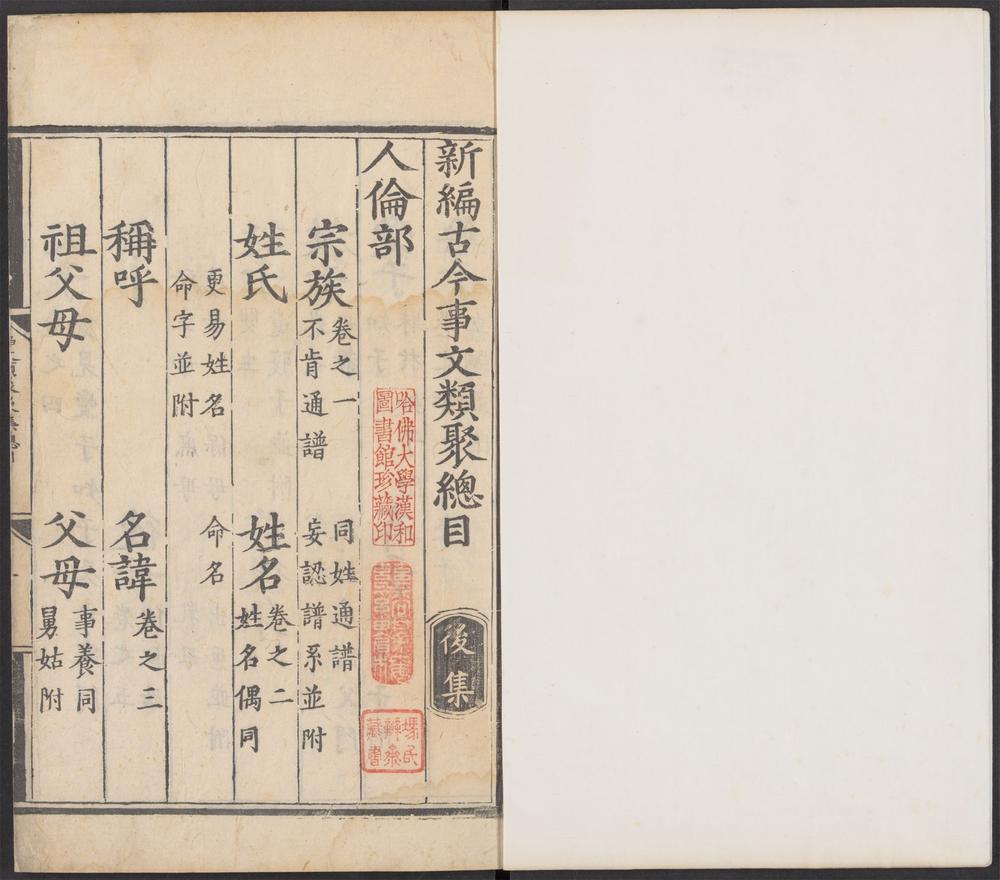 新編古今事文類聚總目 後集
人倫部
宗族 卷之一 不肯通譜 同姓通譜 妄認譜系並附
姓氏 姓名 卷之二 姓名偶同
更易姓名 命字並附 命名
稱呼 名諱 卷之三
祖父母 父母 事養同 舅姑附
哈佛大學漢和
圖書館珍藏印
馮氏
辨齋
藏書